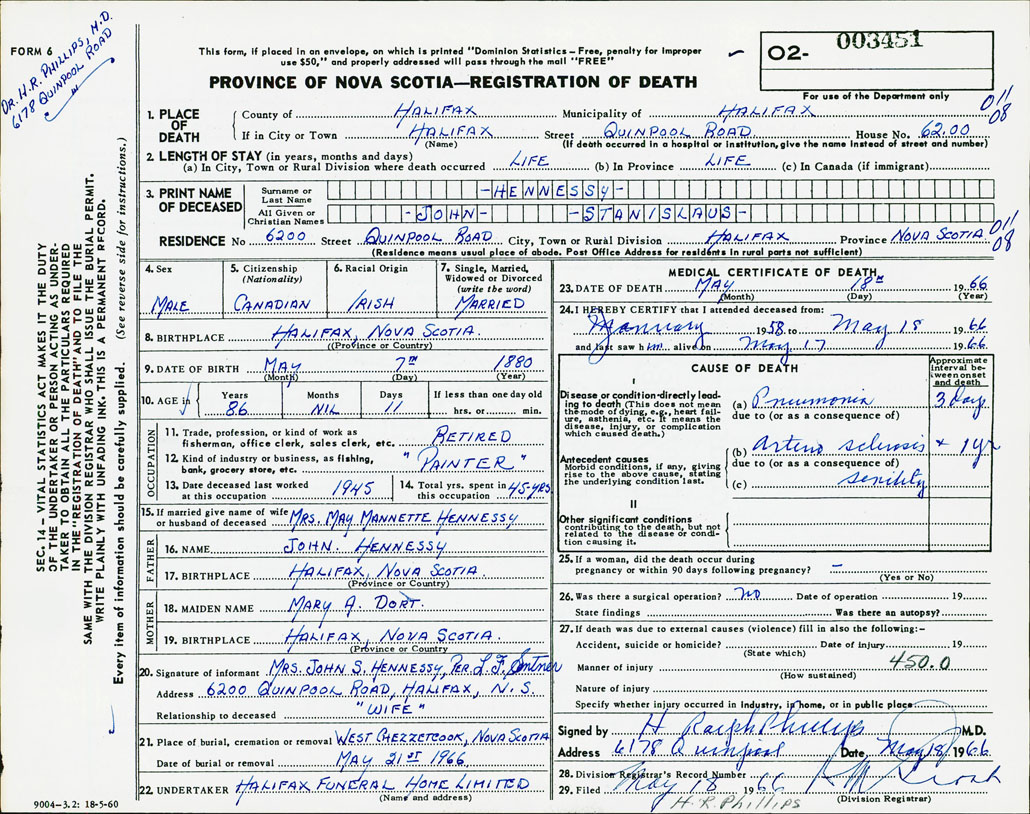 FORM 6
DR. H.R. PHILLIPS, M.D.
6178 QUINPOOL ROAD
This form, if placed in an envelope, on which is printed "Dominion Statistics – Free, penalty for improper
use $50," and properly addressed will pass through the mail "FREE"
PROVINCE OF NOVA SCOTIA—REGISTRATION OF DEATH
O2- 003451
For use of the Department only
011
08
1. PLACE OF DEATH
County of HALIFAX Municipality of HALIFAX
If in City or Town HALIFAX Street QUINPOOL ROAD House No. 6200
(Name) (If death occurred in a hospital or institution, give the name instead of street and number)
2. LENGTH OF STAY (in years, months and days)
(a) In City, Town or Rural Division where death occurred LIFE (b) In Province LIFE (c) In Canada (if immigrant)
3. PRINT NAME OF DECEASED
Surname or Last Name -HENNESSY-
All Given or Christian Names -JOHN- -STANISLAUS-
RESIDENCE No 6200 Street QUINPOOL ROAD City, Town or Rural Division HALIFAX Province NOVA SCOTIA
011
08
(Residence means usual place of abode. Post Office Address for residents in rural parts not sufficient)
4. Sex
MALE
5. Citizenship
(Nationality)
CANADIAN
6. Racial Origin
IRISH
7. Single, Married,
Widowed or Divorced
(write the word)
MARRIED
8. BIRTHPLACE HALIFAX, NOVA SCOTIA.
((Province or Country)
9. DATE OF BIRTH MAY 7TH 1880
(Month) (Day) (Year)
10. AGE in
Years Months Days If less than one day old
86 NIL 11 hrs. or min.
OCCUPATION
11. Trade, profession, or kind of work as
fisherman, office clerk, sales clerk, etc. RETIRED
12. Kind of industry or business, as fishing,
bank, grocery store, etc. "PAINTER"
13. Date deceased last worked
at this occupation 1945
14. Total yrs. spent in
this occupation 45-YRS.
15. If married give name of wife
or husband of deceased MRS. MAY MANNETTE HENNESSY
FATHER
16. NAME JOHN. HENNESSY
17. BIRTHPLACE HALIFAX, NOVA SCOTIA.
(Province or Country)
MOTHER
18. MAIDEN NAME MARY A. DORT.
19. BIRTHPLACE HALIFAX, NOVA SCOTIA.
(Province or Country)
20. Signature of informant MRS. JOHN S. HENNESSY, PER. L.F.
Address 6200 QUINPOOL ROAD, HALIFAX, N.S.
Relationship to deceased "WIFE"
21. Place of burial, cremation or removal WEST CHEZZETCOOK, NOVA SCOTIA
Date of burial or removal MAY 21ST 1966
22. UNDERTAKER HALIFAX FUNERAL HOME LIMITED
(Name and address)
9004-3.2: 18-5-60
MEDICAL CERTIFICATE OF DEATH
23. DATE OF DEATH MAY 18TH 1966
(Month) (Day) (Year)
24. I HEREBY CERTIFY that I attended deceased from:
January 1958 to May 18 1966
and last saw him alive on May 17 1966
CAUSE OF DEATH
Approximate
interval be-
tween onset
and death
I
Disease or condition directly lead-
ing to death (This does not mean
the mode of dying, e.g., heart fail-
ure, asthenia, etc. It means the
disease, injury, or complication
which caused death.)
(a) Pneumonia 3 Day
due to (or as a consequence of)
Antecedent causes
Morbid conditions, if any, giving
rise to the above cause, stating
the underlying condition last.
(b) Arterio sclerosis + 1 yr
due to (or as a consequence of)
(c) senility
II
Other significant conditions
contributing to the death, but not
related to the disease or condi-
tion causing it.
25. If a woman, did the death occur during
pregnancy or within 90 days following pregnancy? –
(Yes or No)
26. Was there a surgical operation? No Date of operation 19
State findings Was there an autopsy?
27. If death was due to external causes (violence) fill in also the following:-
Accident, suicide or homicide? Date of injury 19
(State which)
Manner of injury 450.0
(How sustained)
Nature of injury
Specify whether injury occurred in industry, in home, or in public place
Signed by H Ralph Phillips M.D.
Address 6178 Quinpool Date May 18 1966
28. Division Registrar's Record Number
29. Filed May 18 1966
(Division Registrar)
H.R. Phillips
SEC. 14 – VITAL STATISTICS ACT MAKES IT THE DUTY
OF THE UNDERTAKER OR PERSON ACTING AS UNDER-
TAKER TO OBTAIN ALL THE PARTICULARS REQUIRED
IN THE "REGISTRATION OF DEATH" AND TO FILE THE
SAME WITH THE DIVISION REGISTRAR WHO SHALL ISSUE THE BURIAL PERMIT.
WRITE PLAINLY WITH UNFADING INK. THIS IS A PERMANENT RECORD.
Every item of information should be carefully supplied. (See reverse side for instructions.)